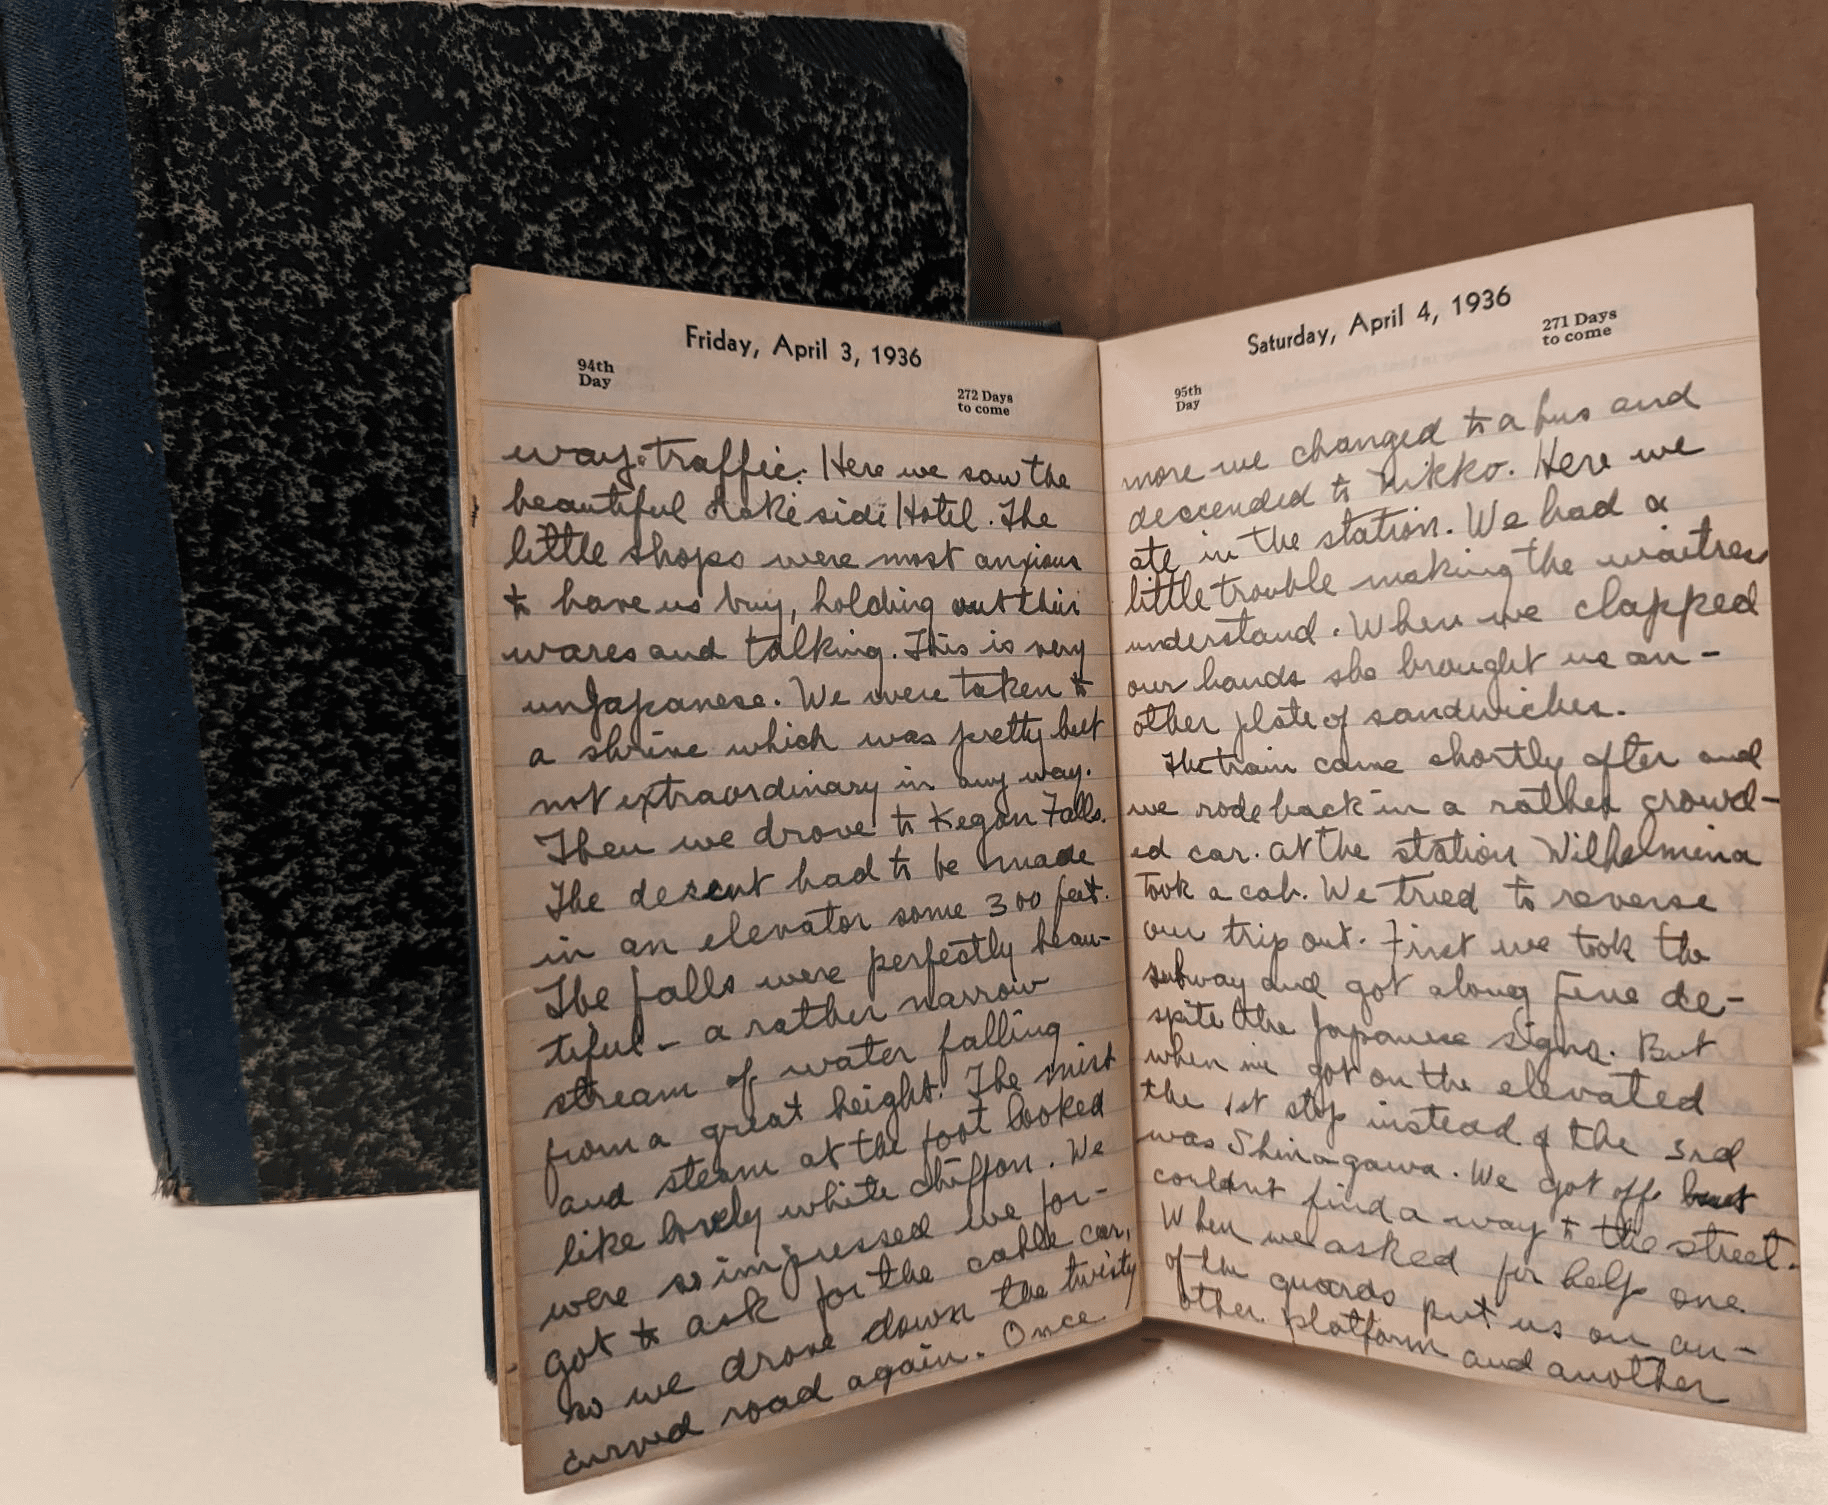 Friday, April 3, 1936
94th
Day
272 Days
to come
way traffic. Here we saw the
beautiful Lakeside Hotel. The
little shops were most anxious
to have us buy, holding out their
wares and talking. This is very
unJapanese. We were taken to
a shrine which was pretty but
not extraordinary in any way.
Then we drove to Kegon Falls.
The descent had to be made
in an elevator some 300 feet.
The falls were perfectly beau-
tiful - a rather narrow
stream of water falling
from a great height. The mist
and steam at the foot looked
like lovely white chiffon. We
were so impressed we for-
got to ask for the cable car,
so we drove down the twisty
curved road again. Once
Saturday, April 4, 1936
95th
Day
271 Days
to come
more we changed to a bus and
descended to Nikko. Here we
ate in the station. We had a
little trouble making the waitress
understand. When we clapped
our hands she brought us an-
other plate of sandwiches.
The train came shortly after and
we rode back in a rather crowd-
ed car. At the station Wilhelmina
took a cab. We tried to reverse
our trip out. First we took the
subway and got along fine de-
spite the Japanese signs. But
when we got on the elevated
the 1st stop instead of the 3rd
was Shinagawa. We got off but
couldnt find a way to the street.
When we asked for help one
of the guards put us on an-
other platform and another